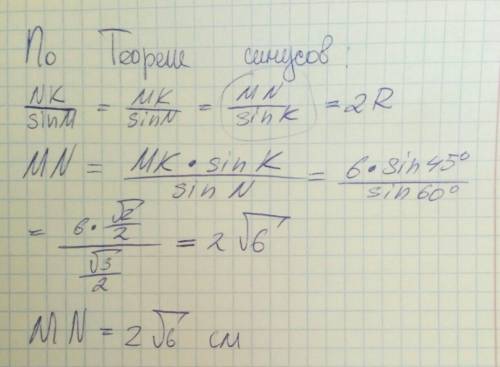 По Теореме синусов:
NK/sinM = MK/sinN = MN/sinK = 2R
MN = MK • sinK / sinN = 6 • sin45° / sin60°
= 6 • √2/2 / √3/2 = 2√6
MN = 2√6 см